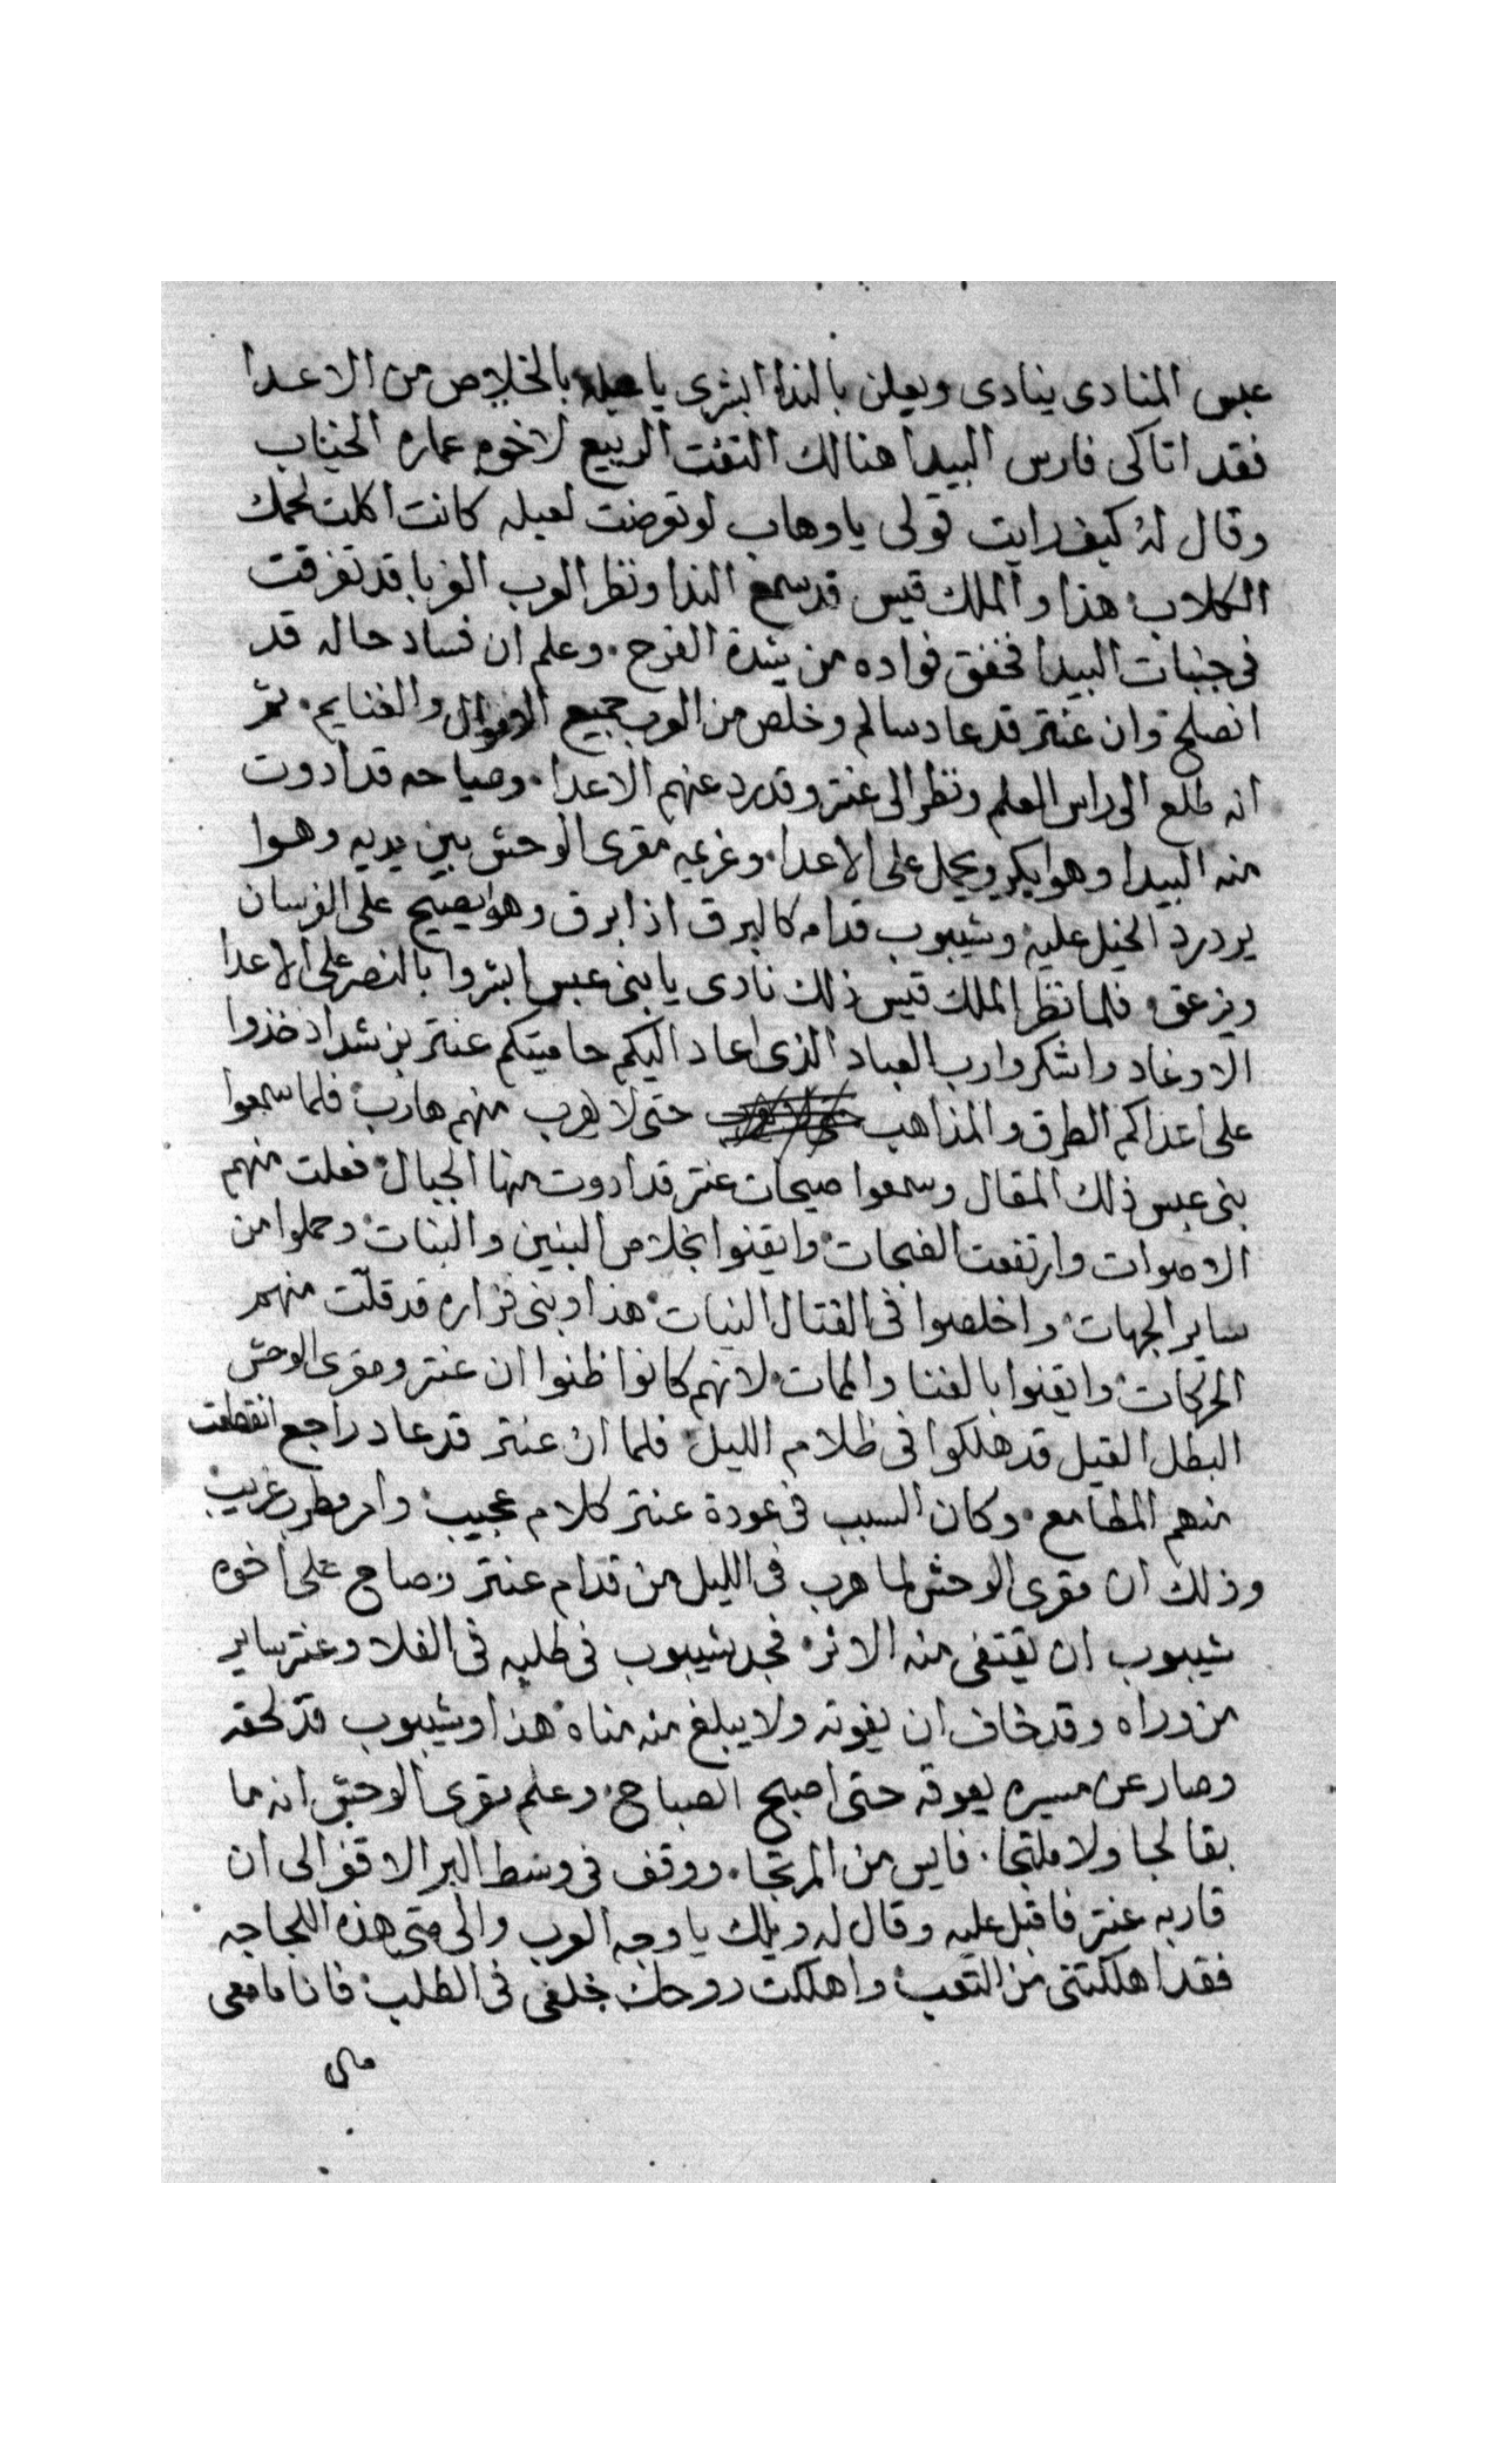 عبس المنادى ينادى ويعلن بالندا ابشرى يا عبله بالخلاص من الاعدا
فقد اتاكى فارس البيدا هنالك التفت الربيع لاخوه عماره
وقال له كيف رايت قولى يا وهاب لو تعرضت لعبله كانت اكلت لحمك
الكلاب هذا والملك قيس قد سمع الندا ونظر العرب الغربا قد تفرقت
فى جنبات البيدا فخفق فواده من شدة الفرح. وعلم ان فساد حاله قد
انصلح وان عنتر قد عاد سالم وخلص من العرب جميع الاموال والغنايم. ثم
انه طلع الى راس العلم ونظر الى عنتر وقد رد عنهم الاعدا. وصياحه قد ادوت
منه البيدا وهوا يكر ويحمل على الاعدا. وغريمه مقرى الوحش بين يديه وهوا
يردرد الخيل عليه وشيبوب قدامه كالبرق اذا برق وهوا يصيح على الفرسان
ويزعق. فلما نظر الملك قيس ذلك نادى يا بنى عبس ابشروا بالنصر على الاعدا
الاوغاد واشكروا رب العباد الذى اعاد اليكم حاميتكم عنتر بن شداد خذوا
على اعداكم الطرق والمذاهب حتى لا يهرب منهم هارب فلما سمعوا
بنى عبس ذلك المقال وسمعوا صيحات عنتر قد ادوت منها الجبال فعلت منهم
الاصوات وارتفعت الضجات وايقنوا بخلاص البنين والبنات وحملوا من
ساير الجهات واخلصوا فى القتال النيات هذا وبنى فزاره قد قلت منهم
الحركات وايقنوا بالفنا والممات لانهم كانوا ظنوا ان عنتر ومقرى الوحش
البطل القيل قد هلكوا فى ظلام الليل فلما ان عنتر قد عاد راجع انقطعت
منهم المطامع. وكان السبب فى عودة عنتر كلام عجيب وامر مطرب غريب
وذلك ان مقرى الوحش لما هرب فى الليل من قدام عنتر وصاح على اخوه
شيبوب ان يقتفى منه الاثر فجد شيبوب فى طلبه فى الفلا وعنتر ساير
من وراه وقد خاف ان يفوته ولا يبلغ منه مناه هذا وشيبوب قد لحقه
وصار عن مسيره يعوقه حتى اصبح الصباح وعلم مقرى الوحش انه ما
بقا لجا ولا ملتجا. فايس من المرتجا. ووقف فى وسط البر الاقفر الى ان
قاربه عنتر فاقبل عليه وقال له ويلك يا وجه العرب والى متى هذه اللجاجه
فقد اهلكتنى من التعب واهلكت روحك خلفى فى الطلب فانا ما معى